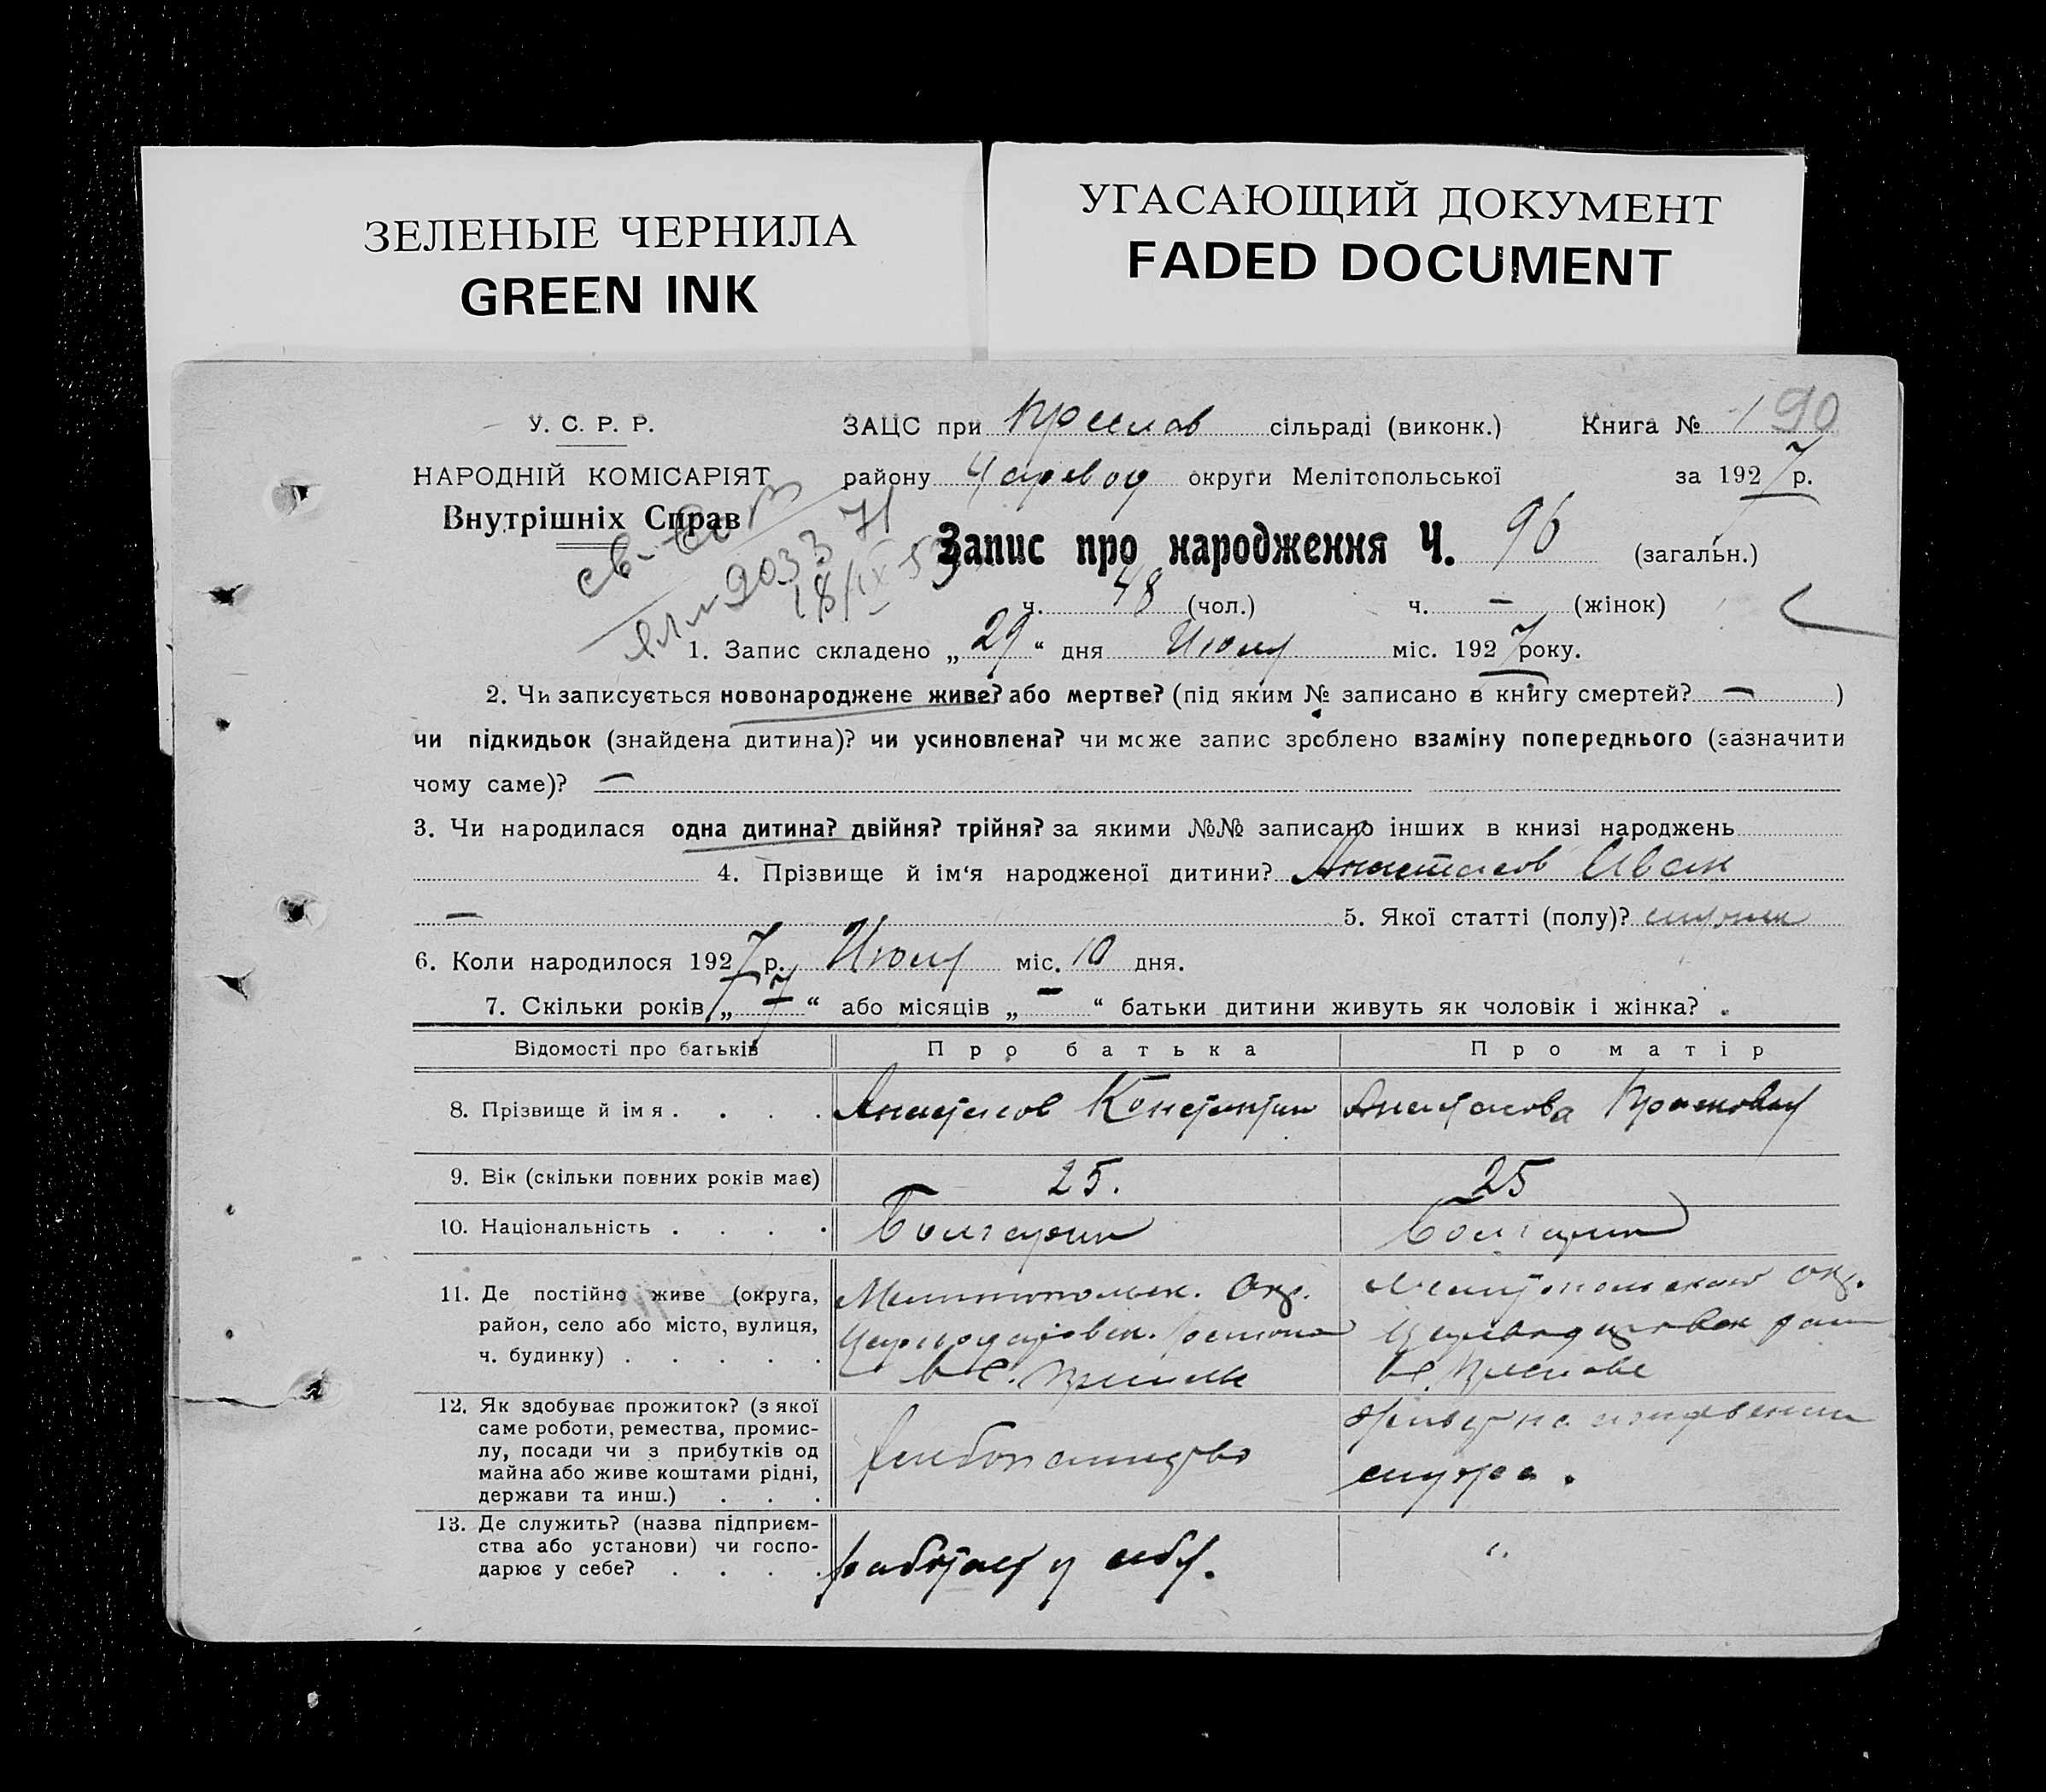 ЗЕЛЕНЫЕ ЧЕРНИЛА
GREEN INK
УГАСАЮЩИЙ ДОКУМЕНТ
FADED DOCUMENT
У. С. Р. Р.
НАРОДНІЙ КОМІСАРІЯТ
Внутрішніх Справ
ЗАЦС при сільраді (виконк.) Книга № 190
району округи Мелітопольської за 1927 р.
Запис про народження Ч. 96 (загальн.)
ч. 48 (чол.) ч. – (жінок)
1. Запис складено „29“ дня Июля міс. 1927 року.
2. Чи записується новонароджене живе? або мертве? (під яким № записано в книгу смертей? – )
чи підкидьок (знайдена дитина)? чи усиновлена? чи може запис зроблено взаміну попереднього (зазначити
чому саме)? –
3. Чи народилася одна дитина? двійня? трійня? за якими №№ записано інших в книзі народжень
4. Прізвище й ім‘я народженої дитини? Анастасов Иван
– 5. Якої статті (полу)?
6. Коли народилося 1927 р. Июля міс. 10 дня.
7. Скільки років „7“ або місяців „–“ батьки дитини живуть як чоловік і жінка?
Відомості про батьків Про батька Про матір
8. Прізвище й імя . . . . Анастасов Константин Анастасова
9. Вік (скільки повних років має) 25. 25
10. Національність . . . . Болгарин
11. Де постійно живе (округа,
район, село або місто, вулиця,
ч. будинку) . . . . .
Мелитопольск. Окр.
12. Як здобуває прожиток? (з якої
саме роботи, ремества, промис-
лу, посади чи з прибутків од
майна або живе коштами рідні,
держави та инш.) . . .
Хлебопашество
13. Де служить? (назва підприєм-
ства або установи) чи госпо-
дарює у себе? . . . .
работает у себя.